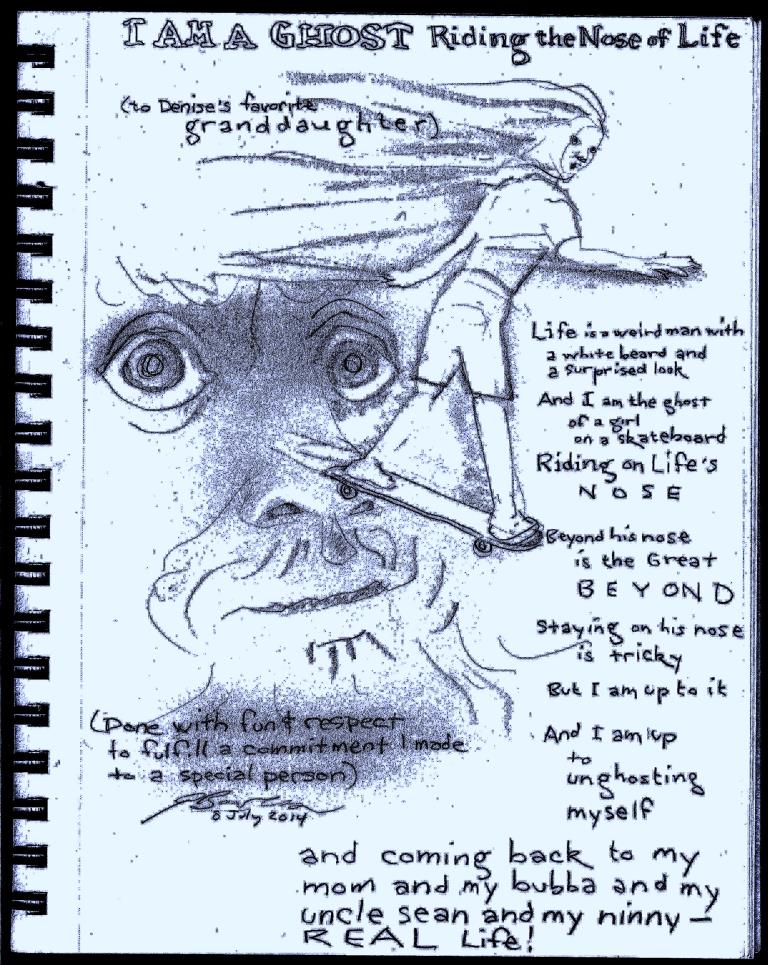 I AM A GHOST Riding the Nose of Life
(to Denise's favorite
granddaughter)
Life is a weird man with
a white beard and
a surprised look
And I am the ghost
of a girl
on a skateboard
Riding on Life's
NOSE
Beyond his nose
is the Great
BEYOND
Staying on his nose
is tricky
But I am up to it
And I am up
to
unghosting
myself
and coming back to my
mom and my bubba and my
uncle sean and my ninny —
REAL Life!
(Done with fun & respect
to fulfill a commitment I made
to a special person)
8 July 2014